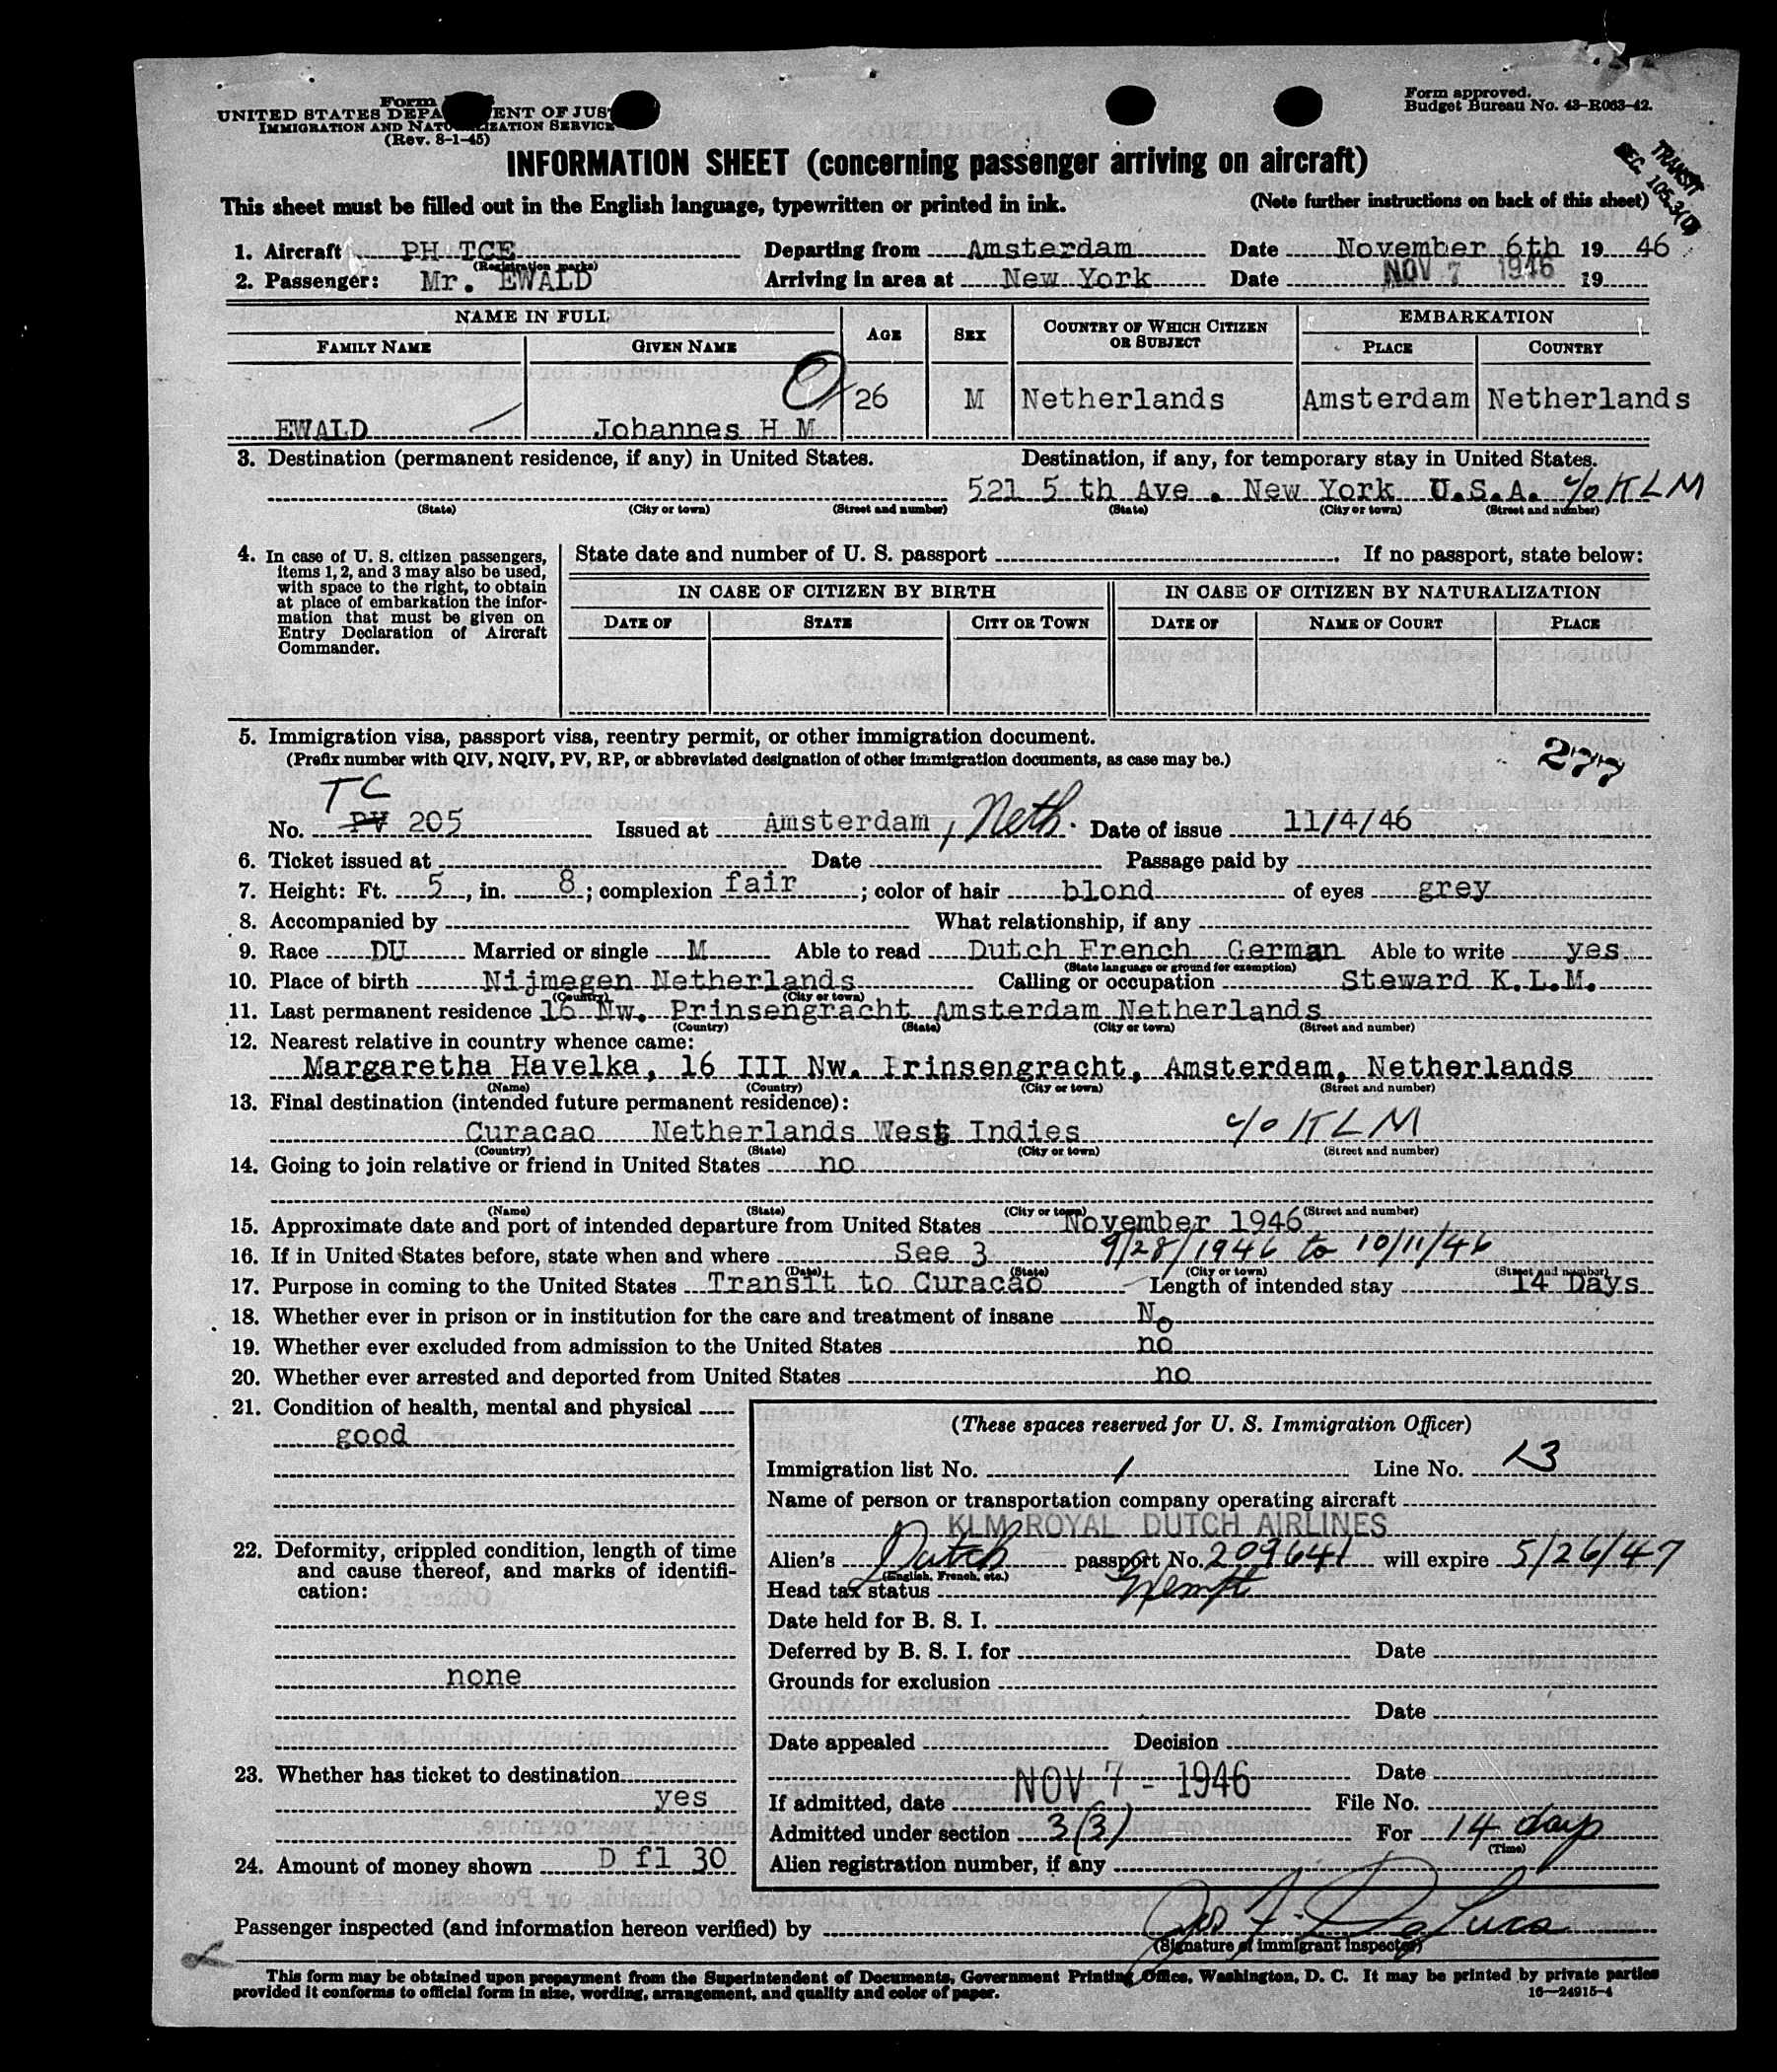 Form
UNITED STATES DEPA ENT OF JUS
IMMIGRATION AND NATU IZATION SERVICE
(Rev. 8-1-45)
Form approved.
Budget Bureau No. 43-R063-42.
TRANSIT
SEC. 105.3(D)
INFORMATION SHEET (concerning passenger arriving on aircraft)
This sheet must be filled out in the English language, typewritten or printed in ink. (Note further instructions on back of this sheet)
1. Aircraft PH TCE Departing from Amsterdam Date November 6th 19 46
(Registration marks)
2. Passenger: Mr. EWALD Arriving in area at New York Date NOV 7 1946 19
NAME IN FULL AGE SEX COUNTRY OF WHICH CITIZEN OR SUBJECT EMBARKATION
FAMILY NAME GIVEN NAME PLACE COUNTRY
26 M Netherlands Amsterdam Netherlands
EWALD Johannes H M
3. Destination (permanent residence, if any) in United States. Destination, if any, for temporary stay in United States.
521 5 th Ave . New York U.S.A. c/o KLM
(State) (City or town) (Street and number) (State) (City or town) (Street and number)
4. In case of U. S. citizen passengers, items 1, 2, and 3 may also be used, with space to the right, to obtain at place of embarkation the information that must be given on Entry Declaration of Aircraft Commander.
State date and number of U. S. passport . If no passport, state below:
IN CASE OF CITIZEN BY BIRTH IN CASE OF CITIZEN BY NATURALIZATION
DATE OF STATE CITY OR TOWN DATE OF NAME OF COURT PLACE
5. Immigration visa, passport visa, reentry permit, or other immigration document.
(Prefix number with QIV, NQIV, PV, RP, or abbreviated designation of other immigration documents, as case may be.)
277
TC
No. PV 205 Issued at Amsterdam, Neth. Date of issue 11/4/46
6. Ticket issued at Date Passage paid by
7. Height: Ft. 5, in. 8; complexion fair; color of hair blond of eyes grey
8. Accompanied by What relationship, if any
9. Race DU Married or single M Able to read Dutch French German Able to write yes
(State language or ground for exemption)
10. Place of birth Nijmegen Netherlands Calling or occupation Steward K.L.M.
(Country) (City or town)
11. Last permanent residence 16 Nw. Prinsengracht Amsterdam Netherlands
(Country) (State) (City or town) (Street and number)
12. Nearest relative in country whence came:
Margaretha Havelka, 16 III Nw. Irinsengracht, Amsterdam, Netherlands
(Name) (Country) (City or town) (Street and number)
13. Final destination (intended future permanent residence):
Curacao Netherlands West Indies c/o KLM
(Country) (State) (City or town) (Street and number)
14. Going to join relative or friend in United States no
(Name) (State) (City or town) (Street and number)
15. Approximate date and port of intended departure from United States November 1946
16. If in United States before, state when and where See 3 9/28/1946 to 10/11/46
(Date) (State) (City or town) (Street and number)
17. Purpose in coming to the United States Transit to Curacao Length of intended stay 14 Days
18. Whether ever in prison or in institution for the care and treatment of insane No
19. Whether ever excluded from admission to the United States no
20. Whether ever arrested and deported from United States no
21. Condition of health, mental and physical
good
22. Deformity, crippled condition, length of time and cause thereof, and marks of identification:
none
23. Whether has ticket to destination
yes
24. Amount of money shown D fl 30
(These spaces reserved for U. S. Immigration Officer)
Immigration list No. 1 Line No. 23
Name of person or transportation company operating aircraft
KLM ROYAL DUTCH AIRLINES
Alien's Dutch passport No. 209641 will expire 5/26/47
(English, French, etc.)
Head tax status Exempt
Date held for B. S. I.
Deferred by B. S. I. for Date
Grounds for exclusion
Date
Date appealed Decision
Date
If admitted, date NOV 7 - 1946 File No.
Admitted under section 3(3) For 14 days
(Time)
Alien registration number, if any
Passenger inspected (and information hereon verified) by Jos F. DeLuca
(Signature of immigrant inspector)
This form may be obtained upon prepayment from the Superintendent of Documents, Government Printing Office, Washington, D. C. It may be printed by private parties
provided it conforms to official form in size, wording, arrangement, and quality and color of paper.
16—24915-4